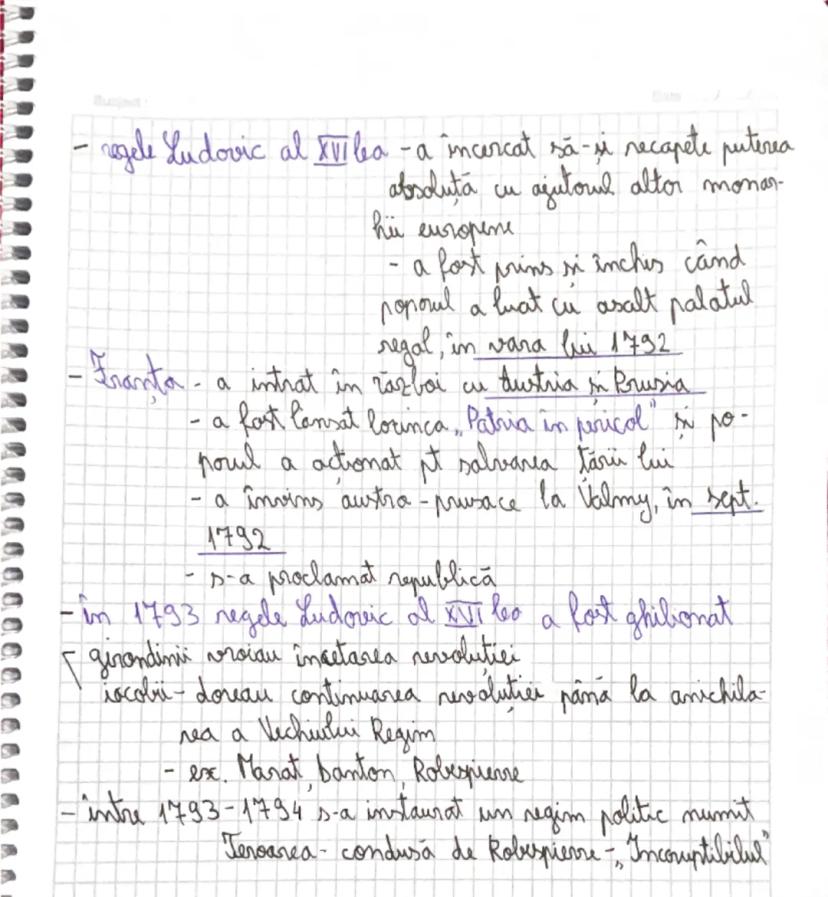 Subject:
Date
- regele Ludovic al XVI lea - a încercat să-și recapete puterea
absolută cu ajutorul altor monar-
hii europene
- a fost prins și închis când
poporul a luat cu asalt palatul
regal, în vara lui 1792
- Franța - a intrat în război cu Austria și Prusia
- a fost lansat lorinca „Patria în pericol" și po-
porul a acționat pt salvarea țării lui
- a învins austro-prusace la Valmy, în sept.
1792
- s-a proclamat republică
- în 1793 regele Ludovic al XVI lea a fost ghilionat
girondinii vroiau încetarea revoluției
iacobii - doreau continuarea revoluției până la anichila-
rea a Vechiului Regim
- ex. Marat, Danton, Robespierre
- între 1793-1794 s-a instaurat un regim politic numit
Teroarea - condusă de Robespierre - „Incoruptibilul"